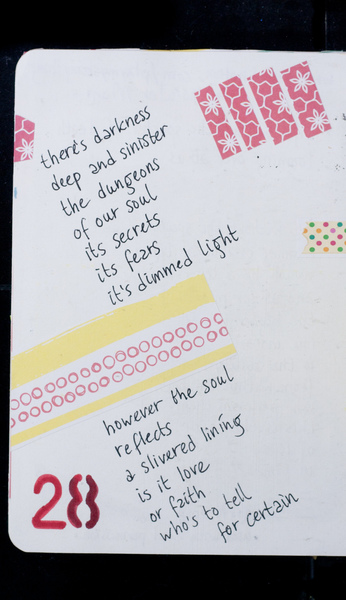 there's darkness
deep and sinister
the dungeons
of our soul
its secrets
its fears
it's dimmed light
however the soul
reflects
a slivered lining
is it love
or faith
who's to tell
for certain
28